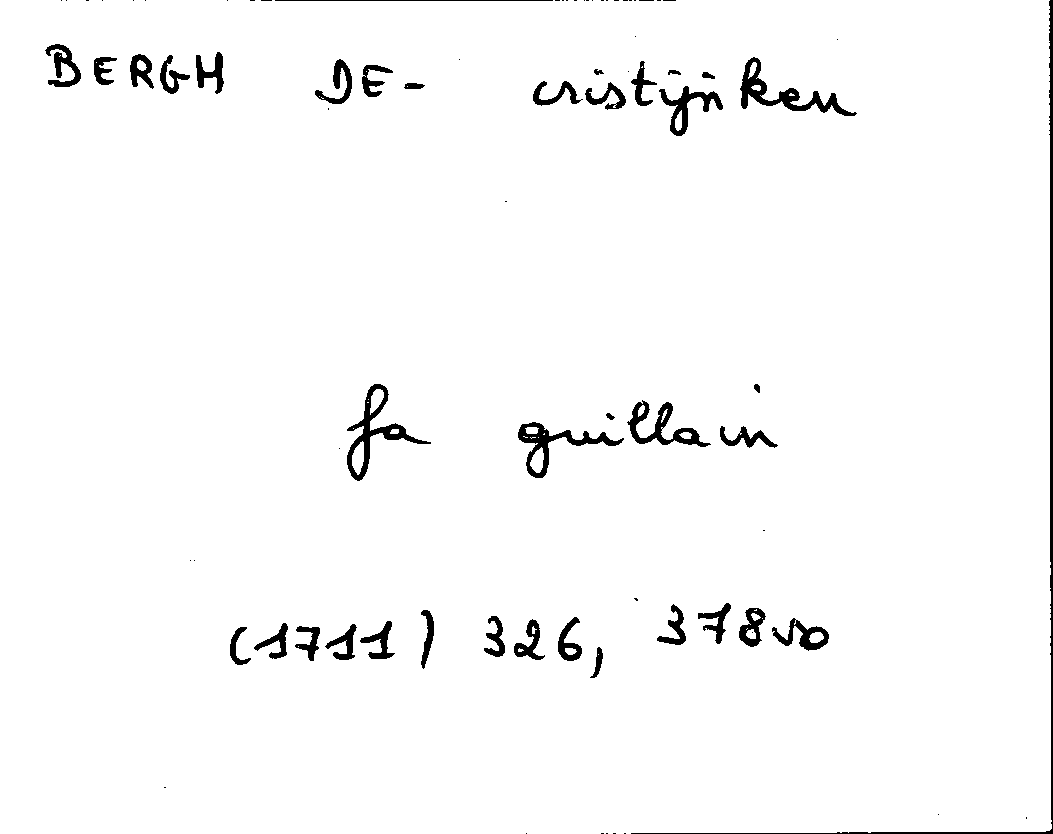 BERGH DE- cristijnken
fa guillain
(1711) 326, 378vo